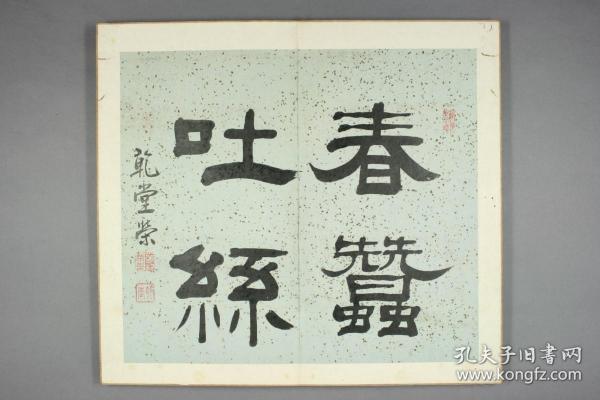 春蠶
吐絲
乾堂榮
孔夫子旧書网
www.kongfz.com